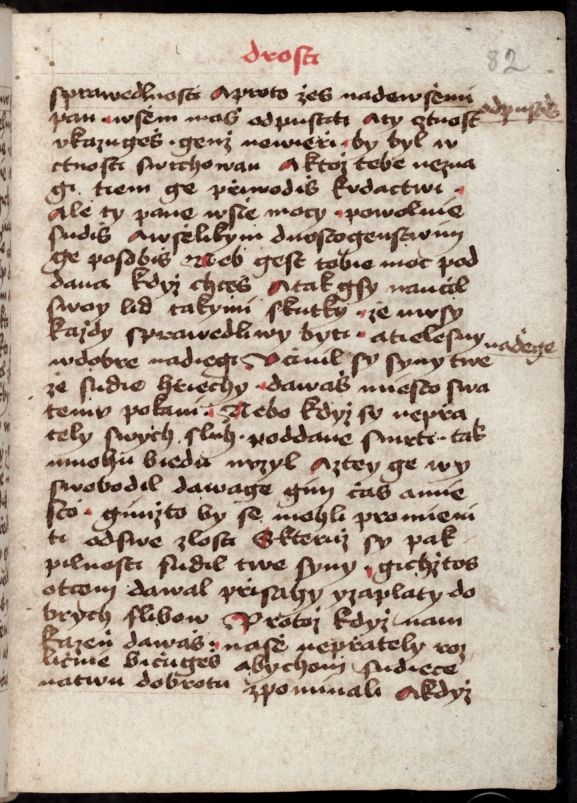 drosti
82
sprawedlnosti Aproto żes nadewssemi
pan wsem mass odpustiti Aty cztnost
odpustiss
vkazugess · genż newerzi · by byl w
ctnosti swrchowan Aktoż tebe nezna
gi tiem ge przriwodiss krdactwi ·
Ale ty pane wssie mocy · powolnie
sudiss Awsselikym duostogenstwim
ge posobiss Neb gest tobie moc pod
dana kdyż chcess Atak gsy nauczil
swoy lid takymi skutky · że mrsy
każdy sprawedliwy byti · atielesny
nadiege
wdobre nadiegi Vczinil sy syny twe
że sudie hrziechy · dawass miesto swa
temu pokani · Nebo kdyż sy neprzia
tely swych sluh · poddane smrti · tak
mnohu biedu mrzyl Aztey ge wy
swobodil dawage gim czas amie
sto · gimżto by se mohli promieni
ti odswe zlosti Skteruż sy pak
pilnosti sudil twe syny · gichżtos
otcom dawal przisahy yzaplaty do
brych slibow Protoż kdyż nam
kazen dawass · nasse neprzately roz
licznie biczugess abychom sudiece
natwu dobrotu zpominali Akdyż